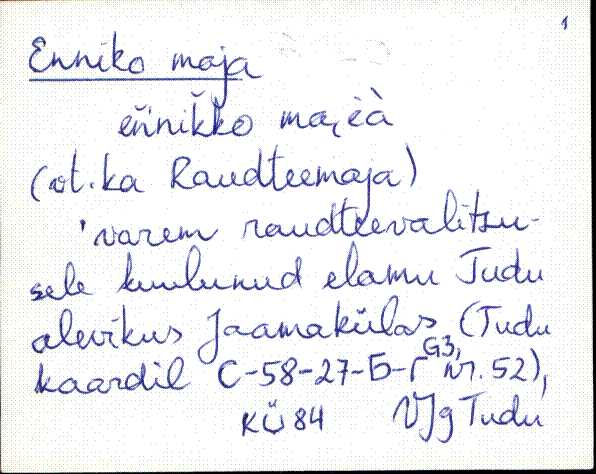 1
Enniko maja
eńnikko ma,èà
(vt. ka Raudteemaja)
'varem raudteevalitsu-
sele kuulunud elamu Tudu
alevikus Jaamakülas (Tudu
kaardil C-58-27-Б-Г G3, nr. 52),
KÜ 84 VJg Tudu